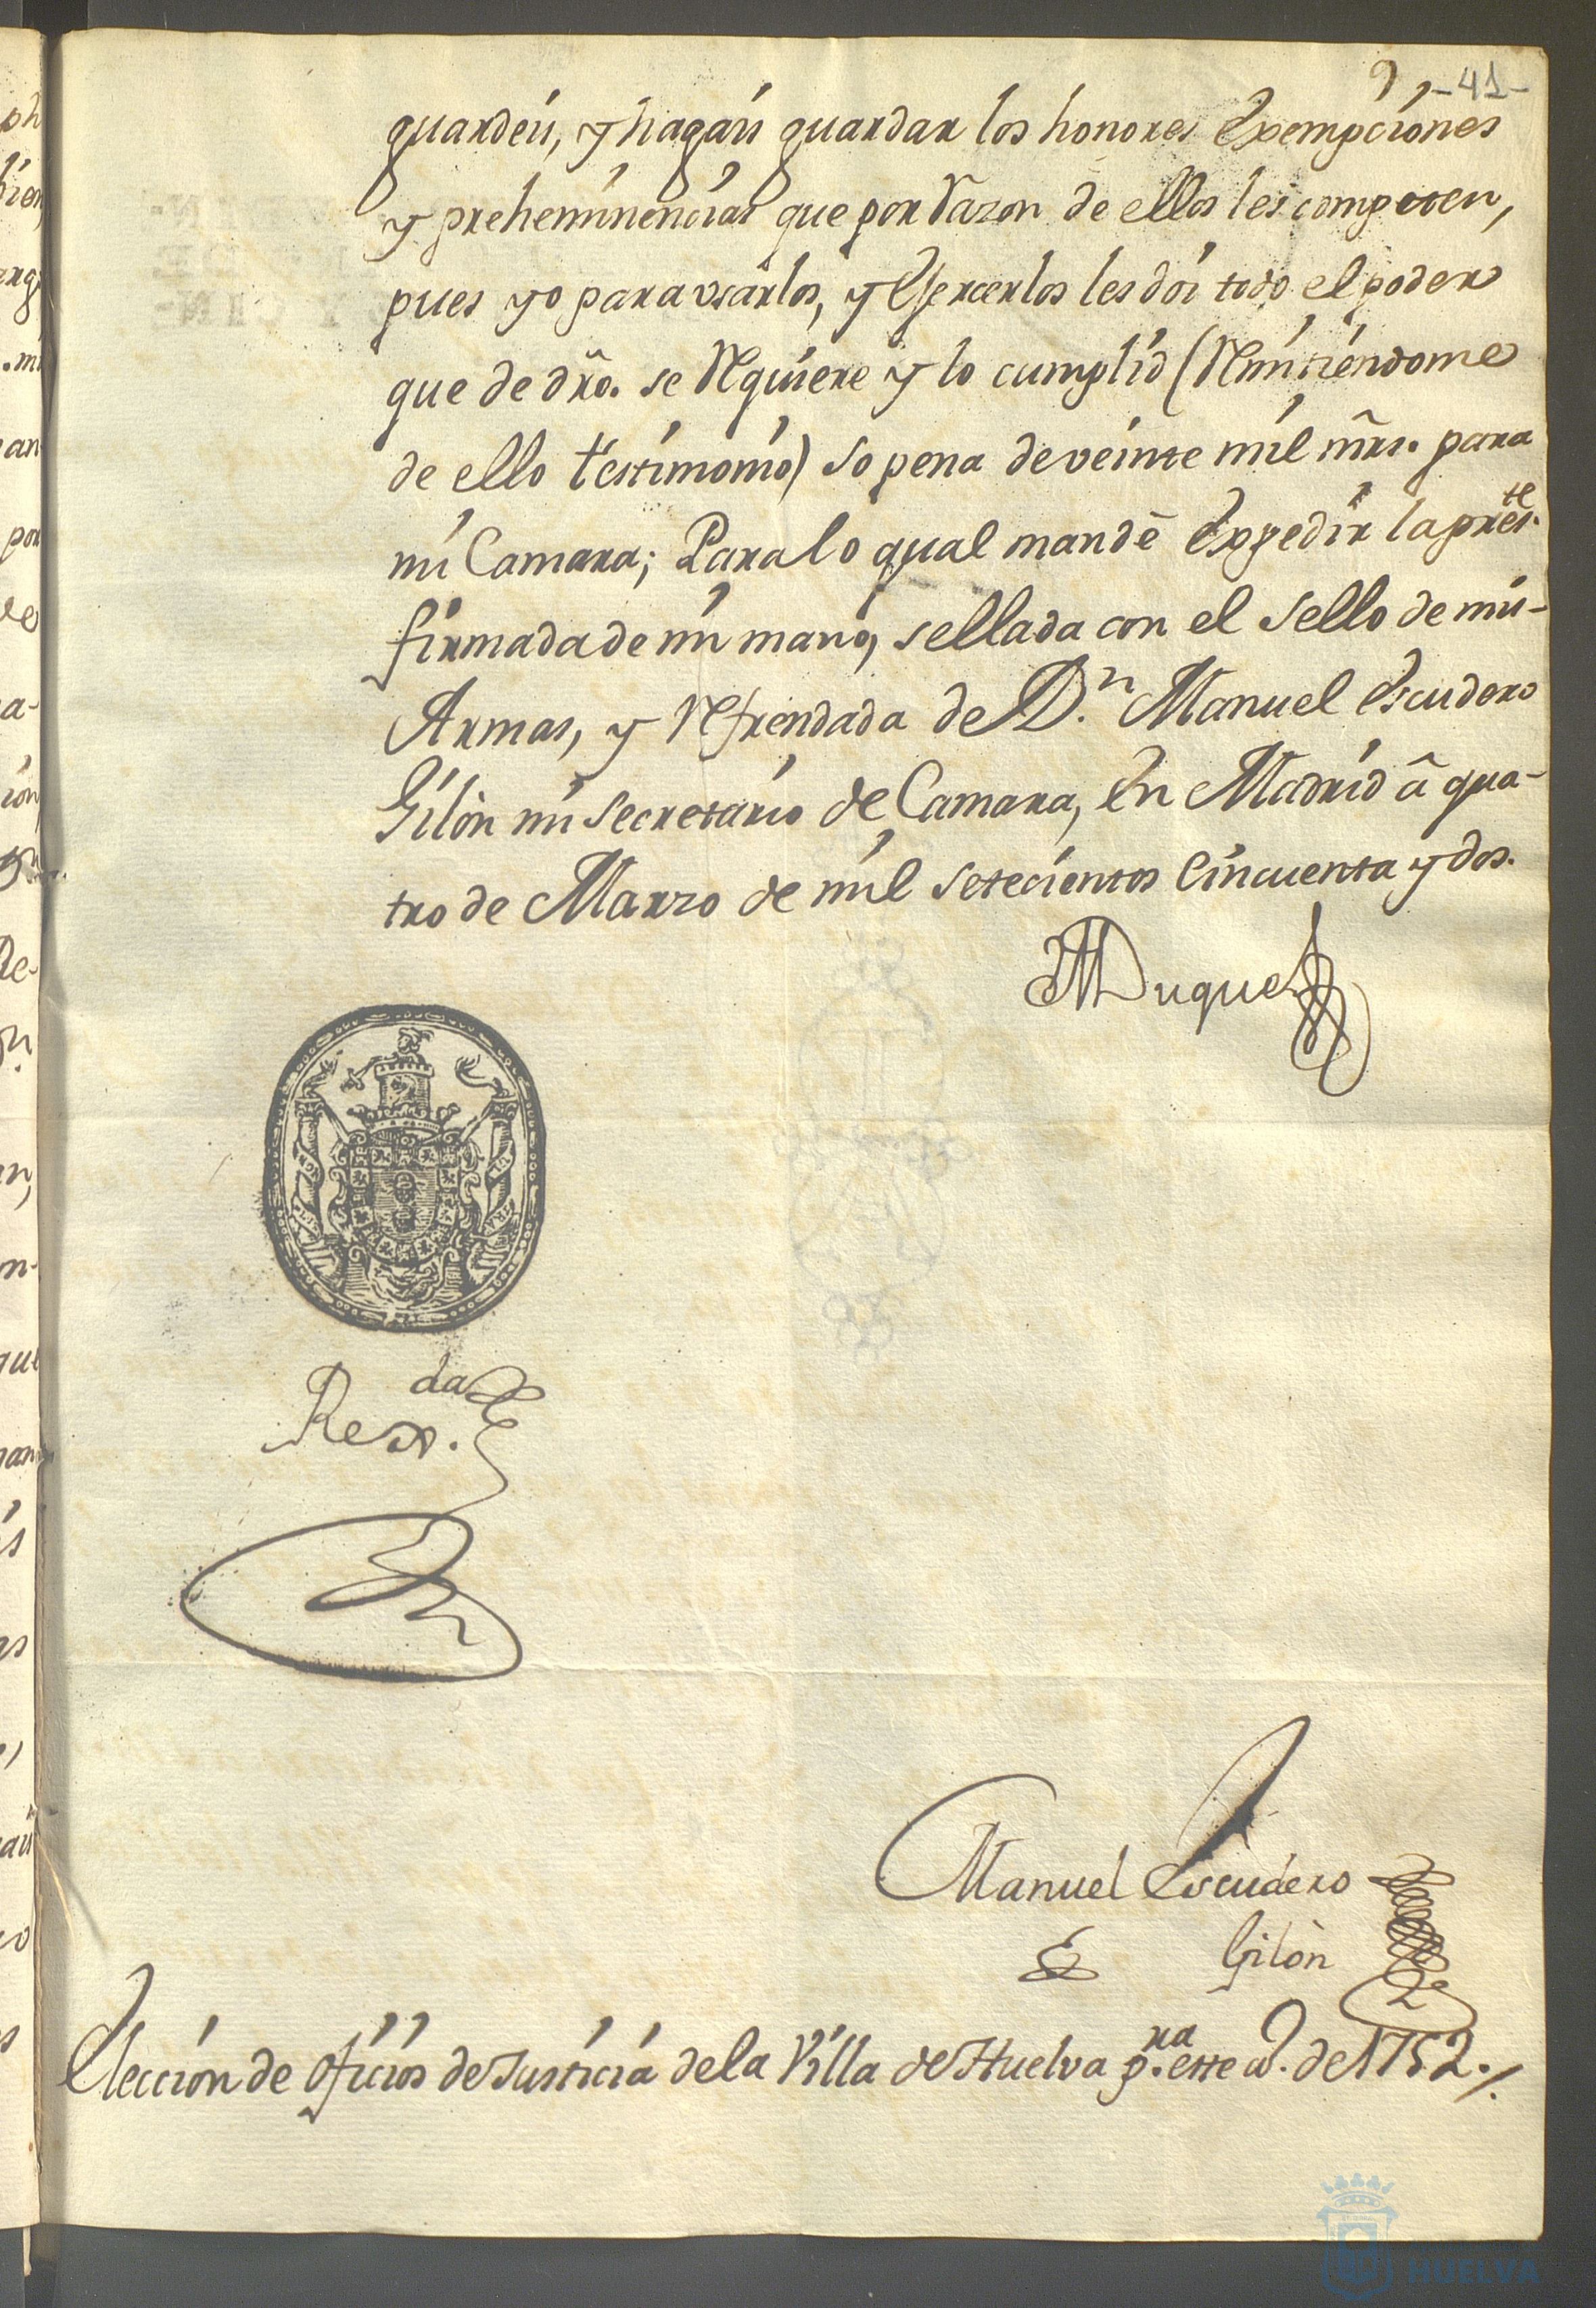 9 -41-
guardéis, y hagáis guardar los honores exempciones
y preheminencias que por razon de ellos les competen,
pues yo para usarlos, y exercerlos les dói todo el poder
que de dro. se requiere y lo cumplid (remitiendome
de ello testimonio) so pena de veinte mil mrs. para
mi Camara; Para lo qual mandè expedir la preste.
firmada de mi mano, sellada con el sello de mis-
Armas, y refrendada de Dn. Manuel Escudero
Gilòn mi secretario de Camara, en Madrid â qua-
tro de Marzo de mil setecientos cincuenta y dos.
El Duque
Rexda.
Manuel Escudero
Gilòn
Elección de oficios de Justicia de la Villa de Huelva p.ra este a. de 1752./.
HUELVA